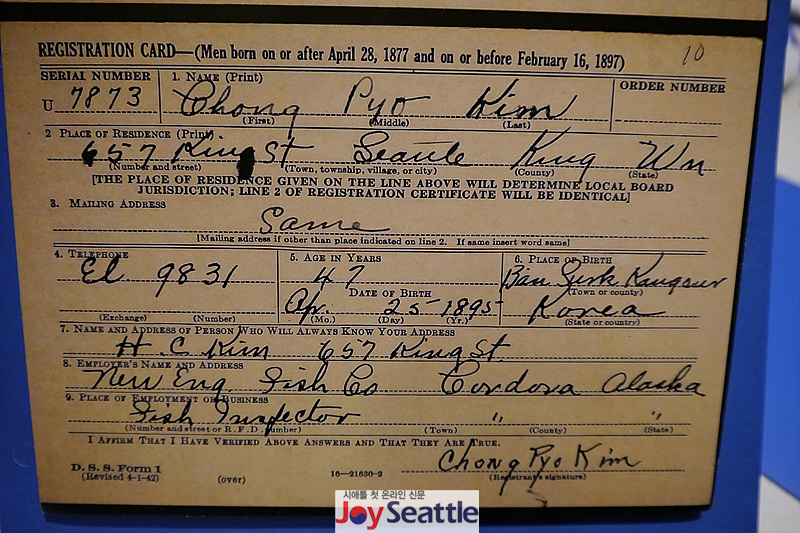 REGISTRATION CARD—(Men born on or after April 28, 1877 and on or before February 16, 1897)
10
SERIAL NUMBER
1. NAME (Print)
ORDER NUMBER
U 7873
Chong Pyo Kim
(First) (Middle) (Last)
2 PLACE OF RESIDENCE (Print)
657 King St Seattle King Wn
(Number and street) (Town, township, village, or city) (County) (State)
[THE PLACE OF RESIDENCE GIVEN ON THE LINE ABOVE WILL DETERMINE LOCAL BOARD
JURISDICTION; LINE 2 OF REGISTRATION CERTIFICATE WILL BE IDENTICAL]
3. MAILING ADDRESS
Same
[Mailing address if other than place indicated on line 2. If same insert word same]
4. TELEPHONE
5. AGE IN YEARS
6. PLACE OF BIRTH
El 9831
47
(Town or county)
DATE OF BIRTH
Apr. 25 1895
Korea
(Exchange) (Number)
(Mo.) (Day) (Yr.)
(State or country)
7. NAME AND ADDRESS OF PERSON WHO WILL ALWAYS KNOW YOUR ADDRESS
H. C. Kim 657 King St.
8. EMPLOYER'S NAME AND ADDRESS
New Eng Fish Co Cordova Alaska
9. PLACE OF EMPLOYMENT OR BUSINESS
Fish Inspector " "
(Number and street or R. F. D. number) (Town) (County) (State)
I AFFIRM THAT I HAVE VERIFIED ABOVE ANSWERS AND THAT THEY ARE TRUE.
Chong Pyo Kim
D. S. S. Form 1
(Revised 4-1-42) (over) 16—21630-2 (Registrant's signature)
시애틀 첫 온라인 신문
JoySeattle